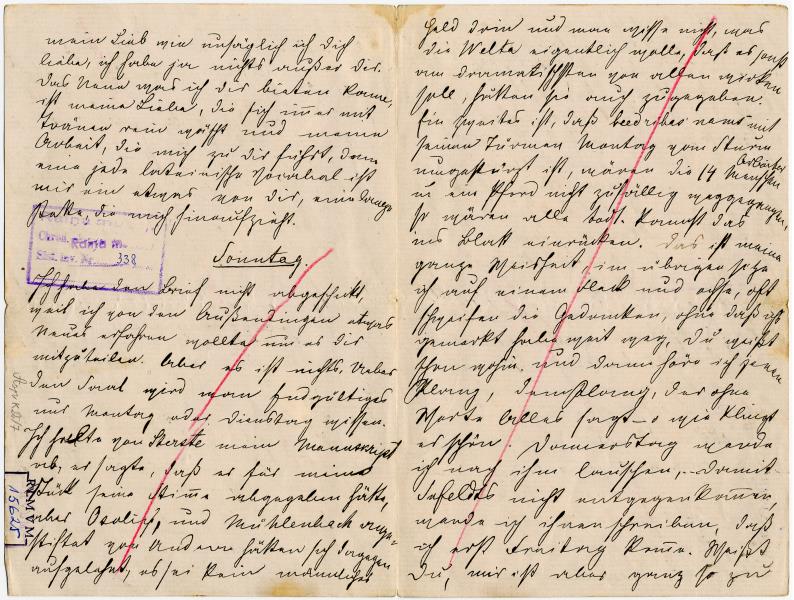 mein Lieb wie unsäglich ich Dich
liebe, ich habe ja nichts außer dir.
Das Neue was ich dir bieten kann,
ist meine Liebe, die sich immer mit
Tränen rein wäscht und meine
Arbeit, die mich zu dir führt, denn
eine jede lateinische Vocabel ist
mir ein etwas von dir, eine
die mich hinaufzieht.
Sonntag.
Ich habe den Brief nicht abgeschickt,
weil ich von den Außendingen etwas
Neues erfahren wollte um es dir
mitzuteilen. Aber es ist nichts. Ueber
den Saal wird man Endgültiges
nur Montag oder Dienstag wissen.
Ich holte von Sterste mein Manuscript
ab, er sagte, daß er für mein
Stück seine Stimme abgegeben hätte,
aber Osoling und Mühlenbach
von Andern hätten sich dagegen
aufgelehnt, es sei kein männlicher
338
RTMVM
15625
Held drin und man wisse nicht, was
die Welta eigentlich wolle, daß es sonst
am dramatischsten von allen wirken
soll, hätten sie auch zugegeben.
Ein zweites ist, daß
seinen Türmen Montag vom Sturm
umgestürzt ist, wären die 14 Arbeiter
Menschen
u ein Pferd nicht zufällig weggegangen,
so wären alle todt. Kannst das
ins Blatt einrücken. Das ist meine
ganze Weisheit, im übrigen sitze
ich auf einem Fleck und ochse, oft
schweifen die Gedanken, ohne daß ichs
gemerkt habe weit weg, Du weißt
schon wohin. und dann höre ich jenen
Klang, der ohne
Worte Alles sagt – o wie klingt
er schön. Donnerstag werde
ich nach ihm lauschen, damit
nicht entgegenkommen
werde ich ihnen schreiben, daß
ich erst Freitag komme. Weißt
Du, mir ist aber ganz so zu